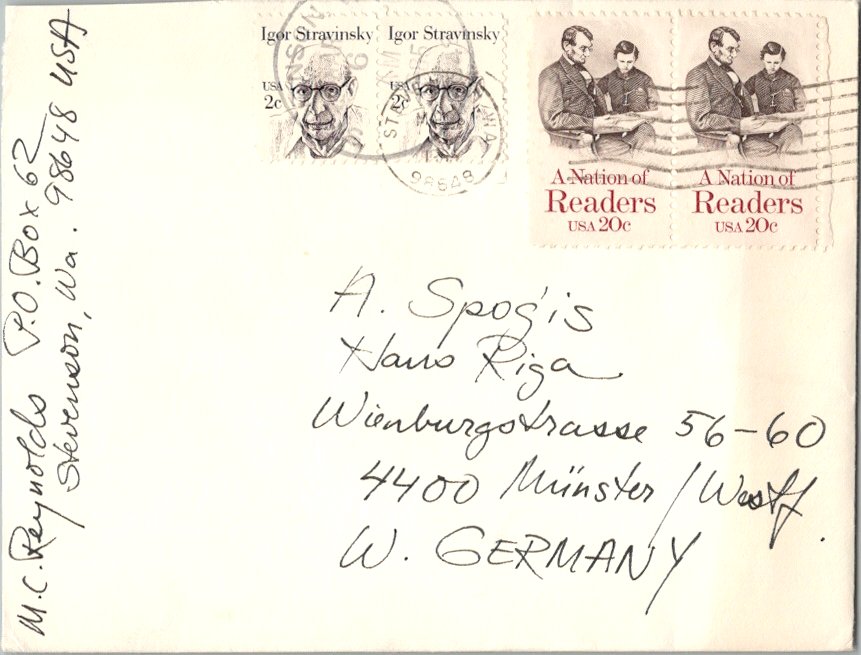 Igor Stravinsky
USA
2c
Igor Stravinsky
USA
2c
98648
A Nation of
Readers
USA 20c
A Nation of
Readers
USA 20c
M.C. Reynolds P.O. Box 62
Stevenson, Wa. 98648 USA
A. Spoģis
Haus Riga
Wienburgstrasse 56-60
4400 Münster/Westf.
W. GERMANY